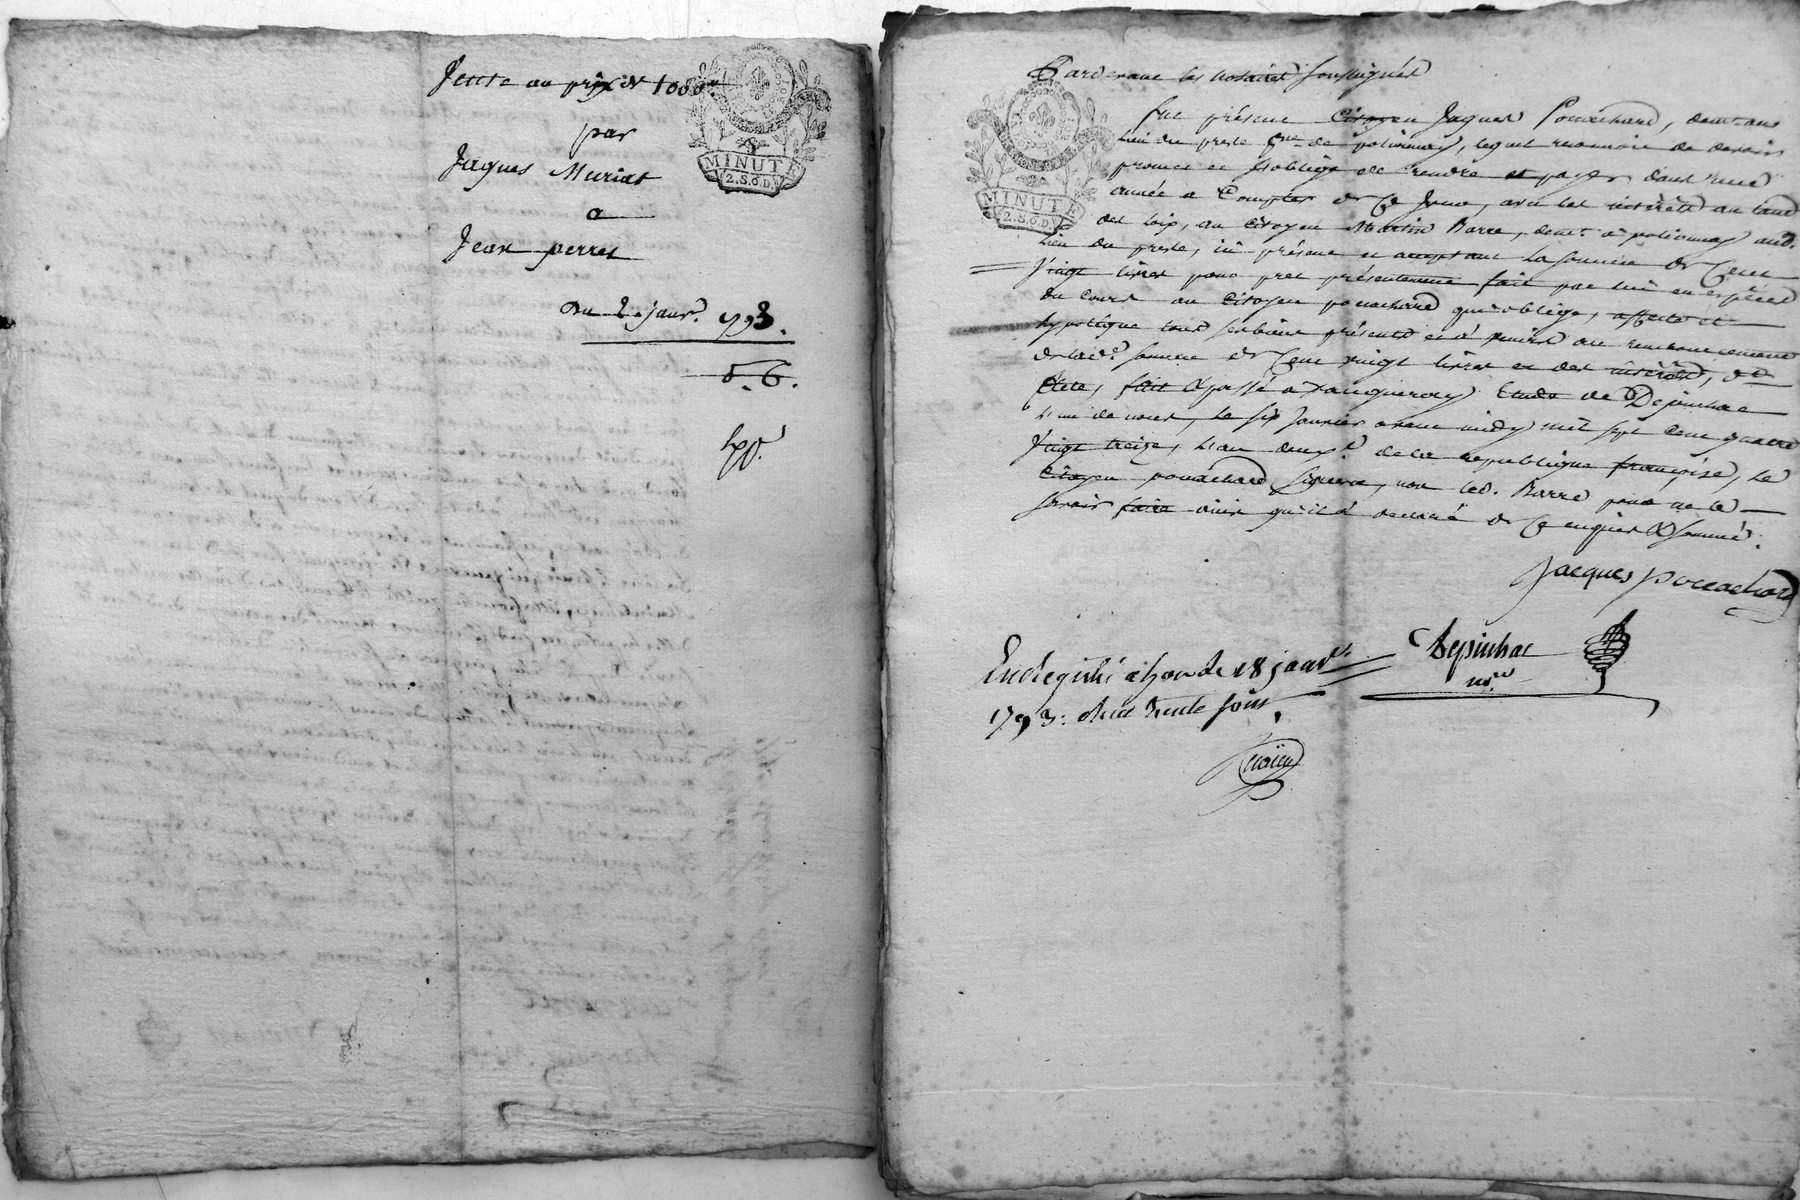 Vente au prix de 1000.#
par
Jaques Muriat
a
Jean perret
du 2 janv.r 1793.
5. 6.
MINUTE
2.S.6.D.
Pardevant les notaires soussignés
MINUTE
2.S.6.D.
fut présent Citoyen Jaques Pouchard, demt. au
lieu du preste de polionnay, lequel reconnoit de devoir
promet et s'oblige de rendre et payer dans une
année a Compter de Ce Jour, avec les intérêts au taud
des loix, au Citoyen Martin Barre, demt. a polionnay aud.
lieu du preste, ici présent et acceptant la somme de Cent
vingt livres pour pret présentement fait par lui en espèces
du Cours au Citoyen pouachard qui oblige, affecte et
hypotèque tous ses biens présents et a venir au remboursement
de lad.e somme de Cent vingt livres et des intérêts,
fait & passé a Etude de Dépinhac
l'un de nous, le six Janvier avant midy mil sept Cent quatre
vingt treize, l'an deux.e de la république françoise, le
Citoyen pouachard Signera, non led. Barre pour ne le
savoir faire ainsi qu'il a declaré de Ce enquis & sommé.
Jacques Pouachard
Depinhac
n.re
Enregistré a le 18 janv.r
1793. Reçu trente sous